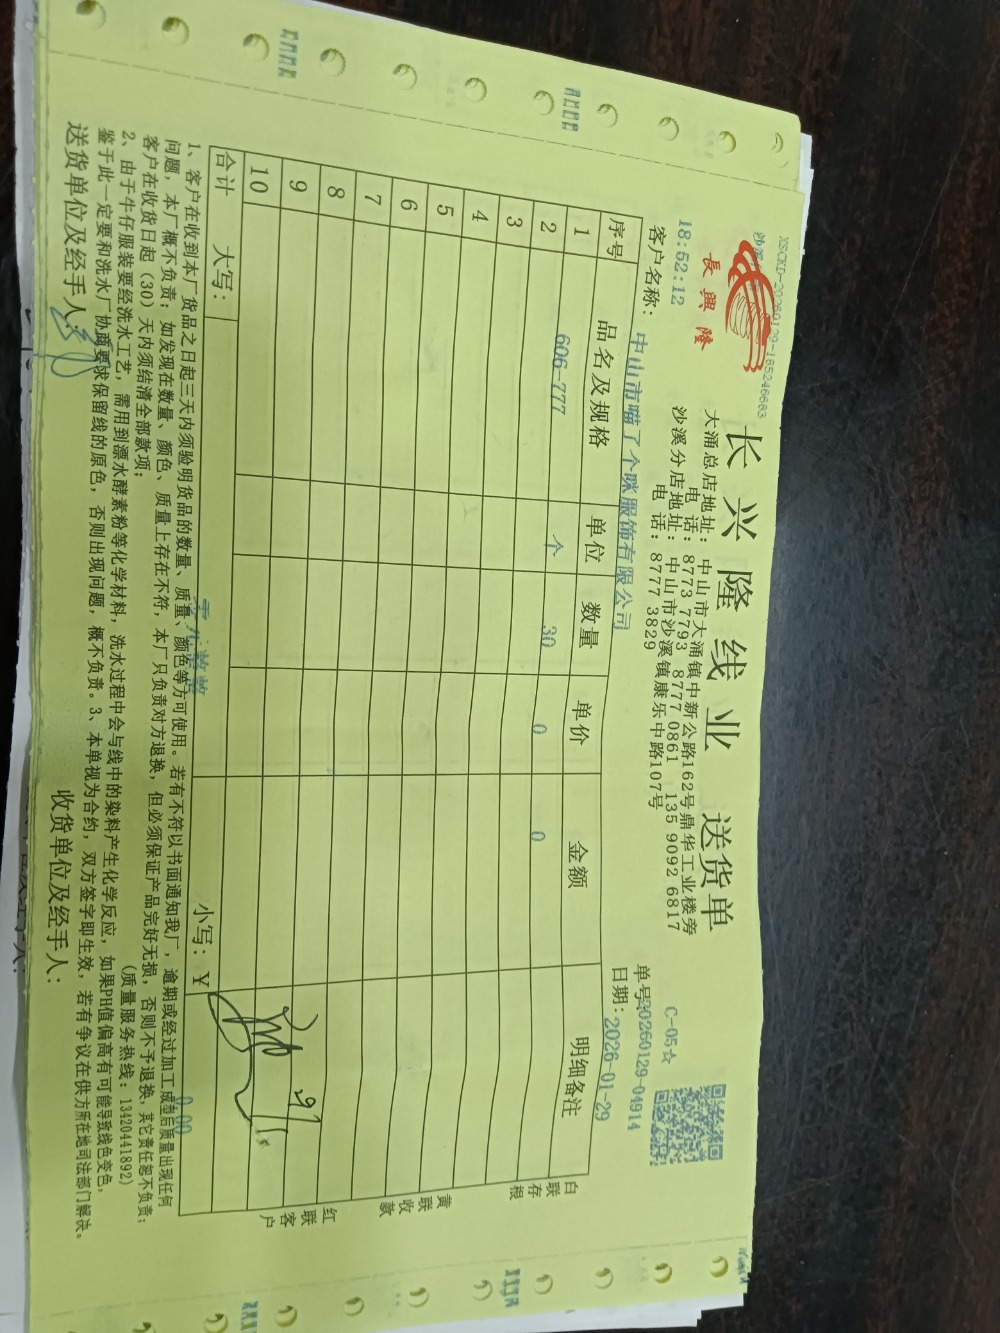 XSCKD-20260129-185246663
長興隆
长兴隆线业 送货单
大涌总店地址：中山市大涌镇中新公路162号鼎华工业楼旁
电 话：8773 7793 8777 0861 135 9092 6817
沙溪分店地址：中山市沙溪镇康乐中路107号
电 话：8777 3829
18:52:12
C-05☆
单号：20260129-04914
客户名称：中山市喵了个咪服饰有限公司
日期：2026-01-29
序号 品名及规格 单位 数量 单价 金额 明细备注
1 606-777 个 30 0 0
2
3
4
5
6
7
8
9
10
合计 大写：零元整 小写：￥ 0.00
白联存根
黄联收款
红联客户
1、客户在收到本厂货品之日起三天内须验明货品的数量、质量、颜色等方可使用。若有不符以书面通知我厂，逾期或经过加工成型后质量出现任何
问题，本厂概不负责；如发现在数量、颜色、质量上存在不符，本厂只负责对方退换，但必须保证产品完好无损，否则不予退换，其它责任恕不负责；
客户在收货日起（30）天内须结清全部款项； （质量服务热线：13420441892）
2、由于牛仔服装要经洗水工艺，需用到漂水酵素粉等化学材料，洗水过程中会与线中的染料产生化学反应，如果PH值偏高有可能导致线色变色，
鉴于此一定要和洗水厂协商要求保留线的原色，否则出现问题，概不负责。3、本单视为合约，双方签字即生效，若有争议在供方所在地司法部门解决。
送货单位及经手人： 收货单位及经手人：